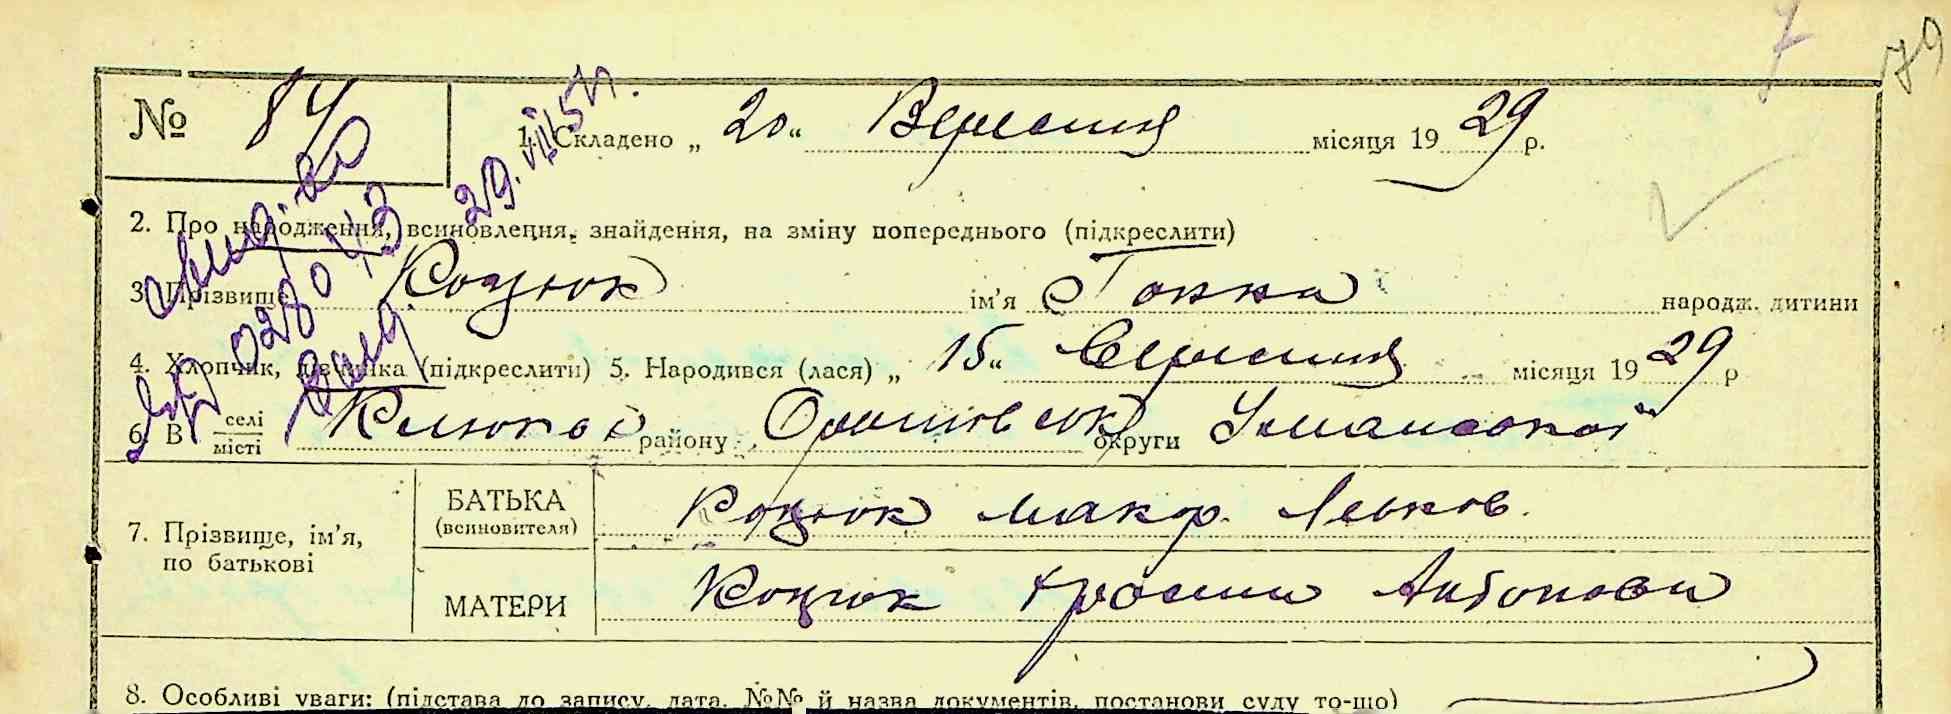 79
№ 84 1. Складено „ 20 “ Вересния місяця 19 29 р.
2. Про народження, всиновлення, знайдення, на зміну попереднього (підкреслити)
3. Прізвище Коцюк ім'я Ганна народж. дитини
4. Хлопчик, дівчинка (підкреслити) 5. Народився (лася) „ 15 “ Вересния місяця 19 29 р
6. В селі місті Клюках району Оратовськ округи Уманської
7. Прізвище, ім'я, по батькові
БАТЬКА (всиновителя) Коцюк Макар. Левков.
МАТЕРИ Коцюк Антонова
8. Особливі уваги: (підстава до запису, дата, №№ й назва документів, постанови суду то-що)
028043
29.VIII 51 г.